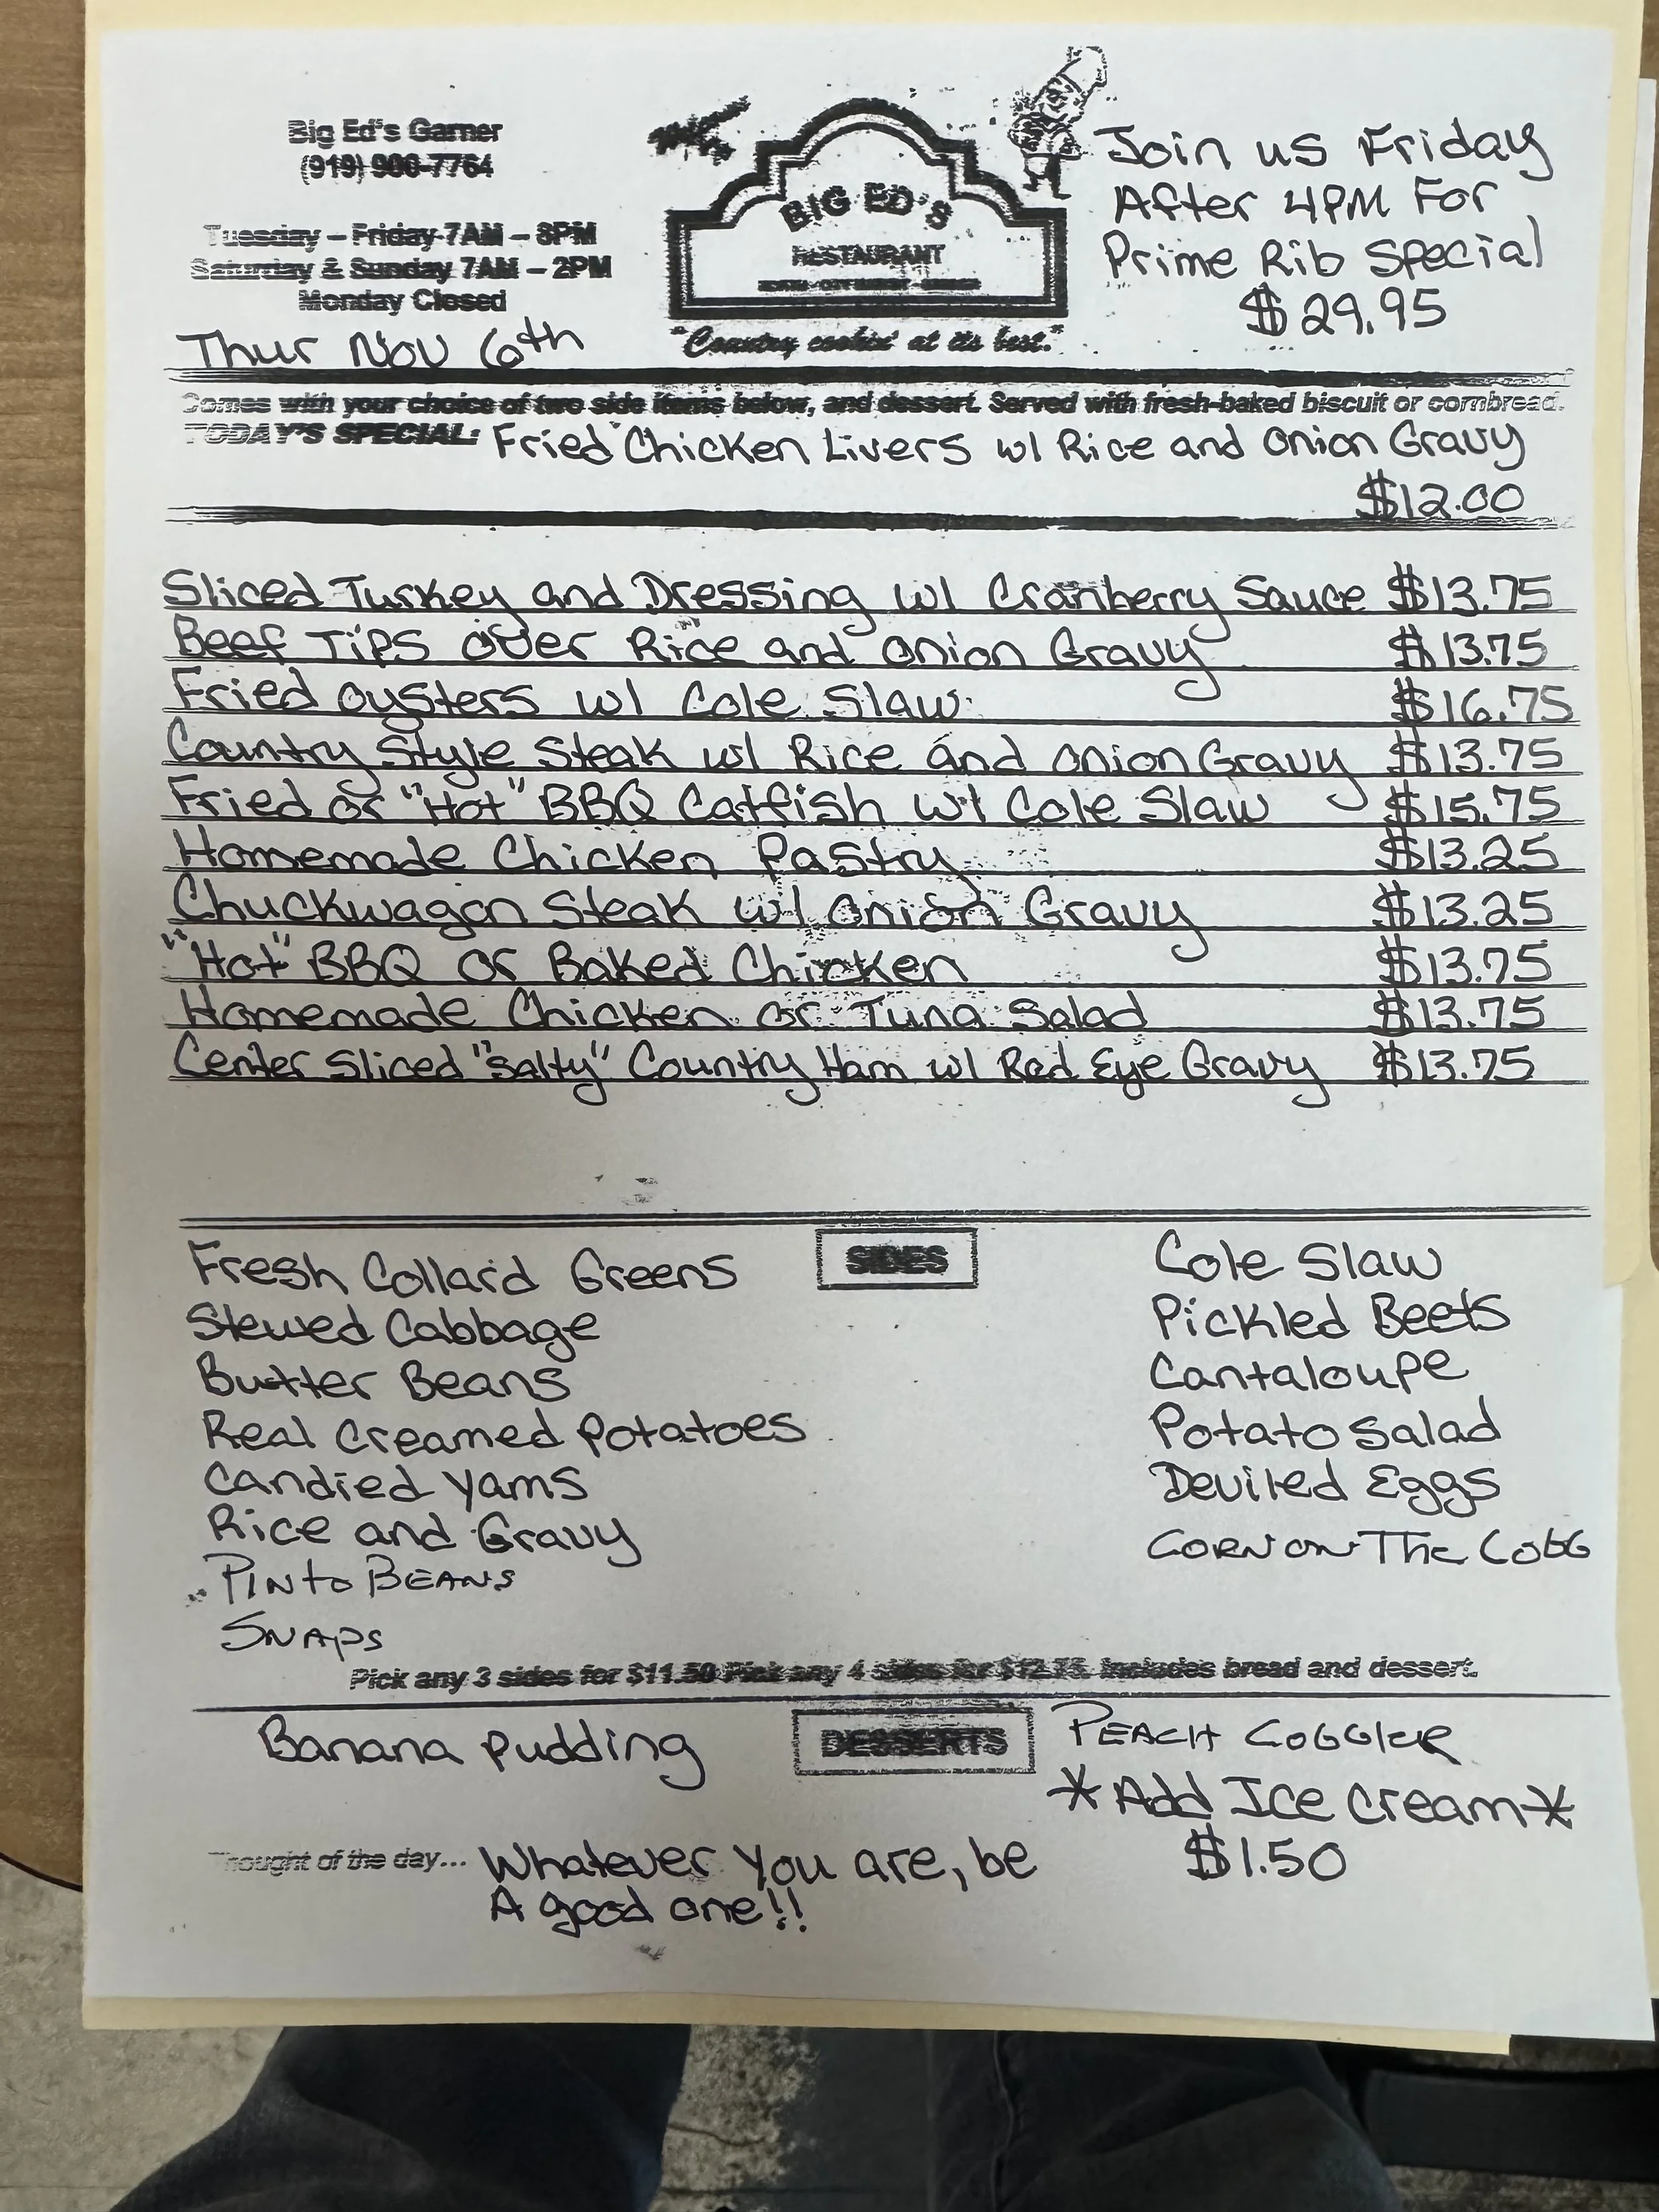 Big Ed's Garner
(919) 900-7764
Tuesday – Friday 7AM – 8PM
Saturday & Sunday 7AM – 2PM
Monday Closed
Thur Nov 6th
BIG ED'S
RESTAURANT
"Country cookin' at its best."
Join us Friday
After 4PM For
Prime Rib Special
$29.95
Comes with your choice of two side items below, and dessert. Served with fresh-baked biscuit or cornbread.
TODAY'S SPECIAL: Fried Chicken Livers w/ Rice and Onion Gravy
$12.00
Sliced Turkey and Dressing w/ Cranberry Sauce $13.75
Beef Tips over Rice and Onion Gravy $13.75
Fried Oysters w/ Cole Slaw $16.75
Country Style Steak w/ Rice and Onion Gravy $13.75
Fried or "Hot" BBQ Catfish w/ Cole Slaw $15.75
Homemade Chicken Pastry $13.25
Chuckwagon Steak w/ Onion Gravy $13.25
"Hot" BBQ or Baked Chicken $13.75
Homemade Chicken or Tuna Salad $13.75
Center Sliced "Salty" Country Ham w/ Red Eye Gravy $13.75
SIDES
Fresh Collard Greens
Stewed Cabbage
Butter Beans
Real Creamed Potatoes
Candied Yams
Rice and Gravy
Pinto Beans
Snaps
Cole Slaw
Pickled Beets
Cantaloupe
Potato Salad
Deviled Eggs
Corn on The Cobb
Pick any 3 sides for $11.50 Pick any 4 sides for $12.75. Includes bread and dessert.
DESSERTS
Banana Pudding
Peach Cobbler
*Add Ice Cream*
$1.50
Thought of the day... Whatever you are, be
A good one!!